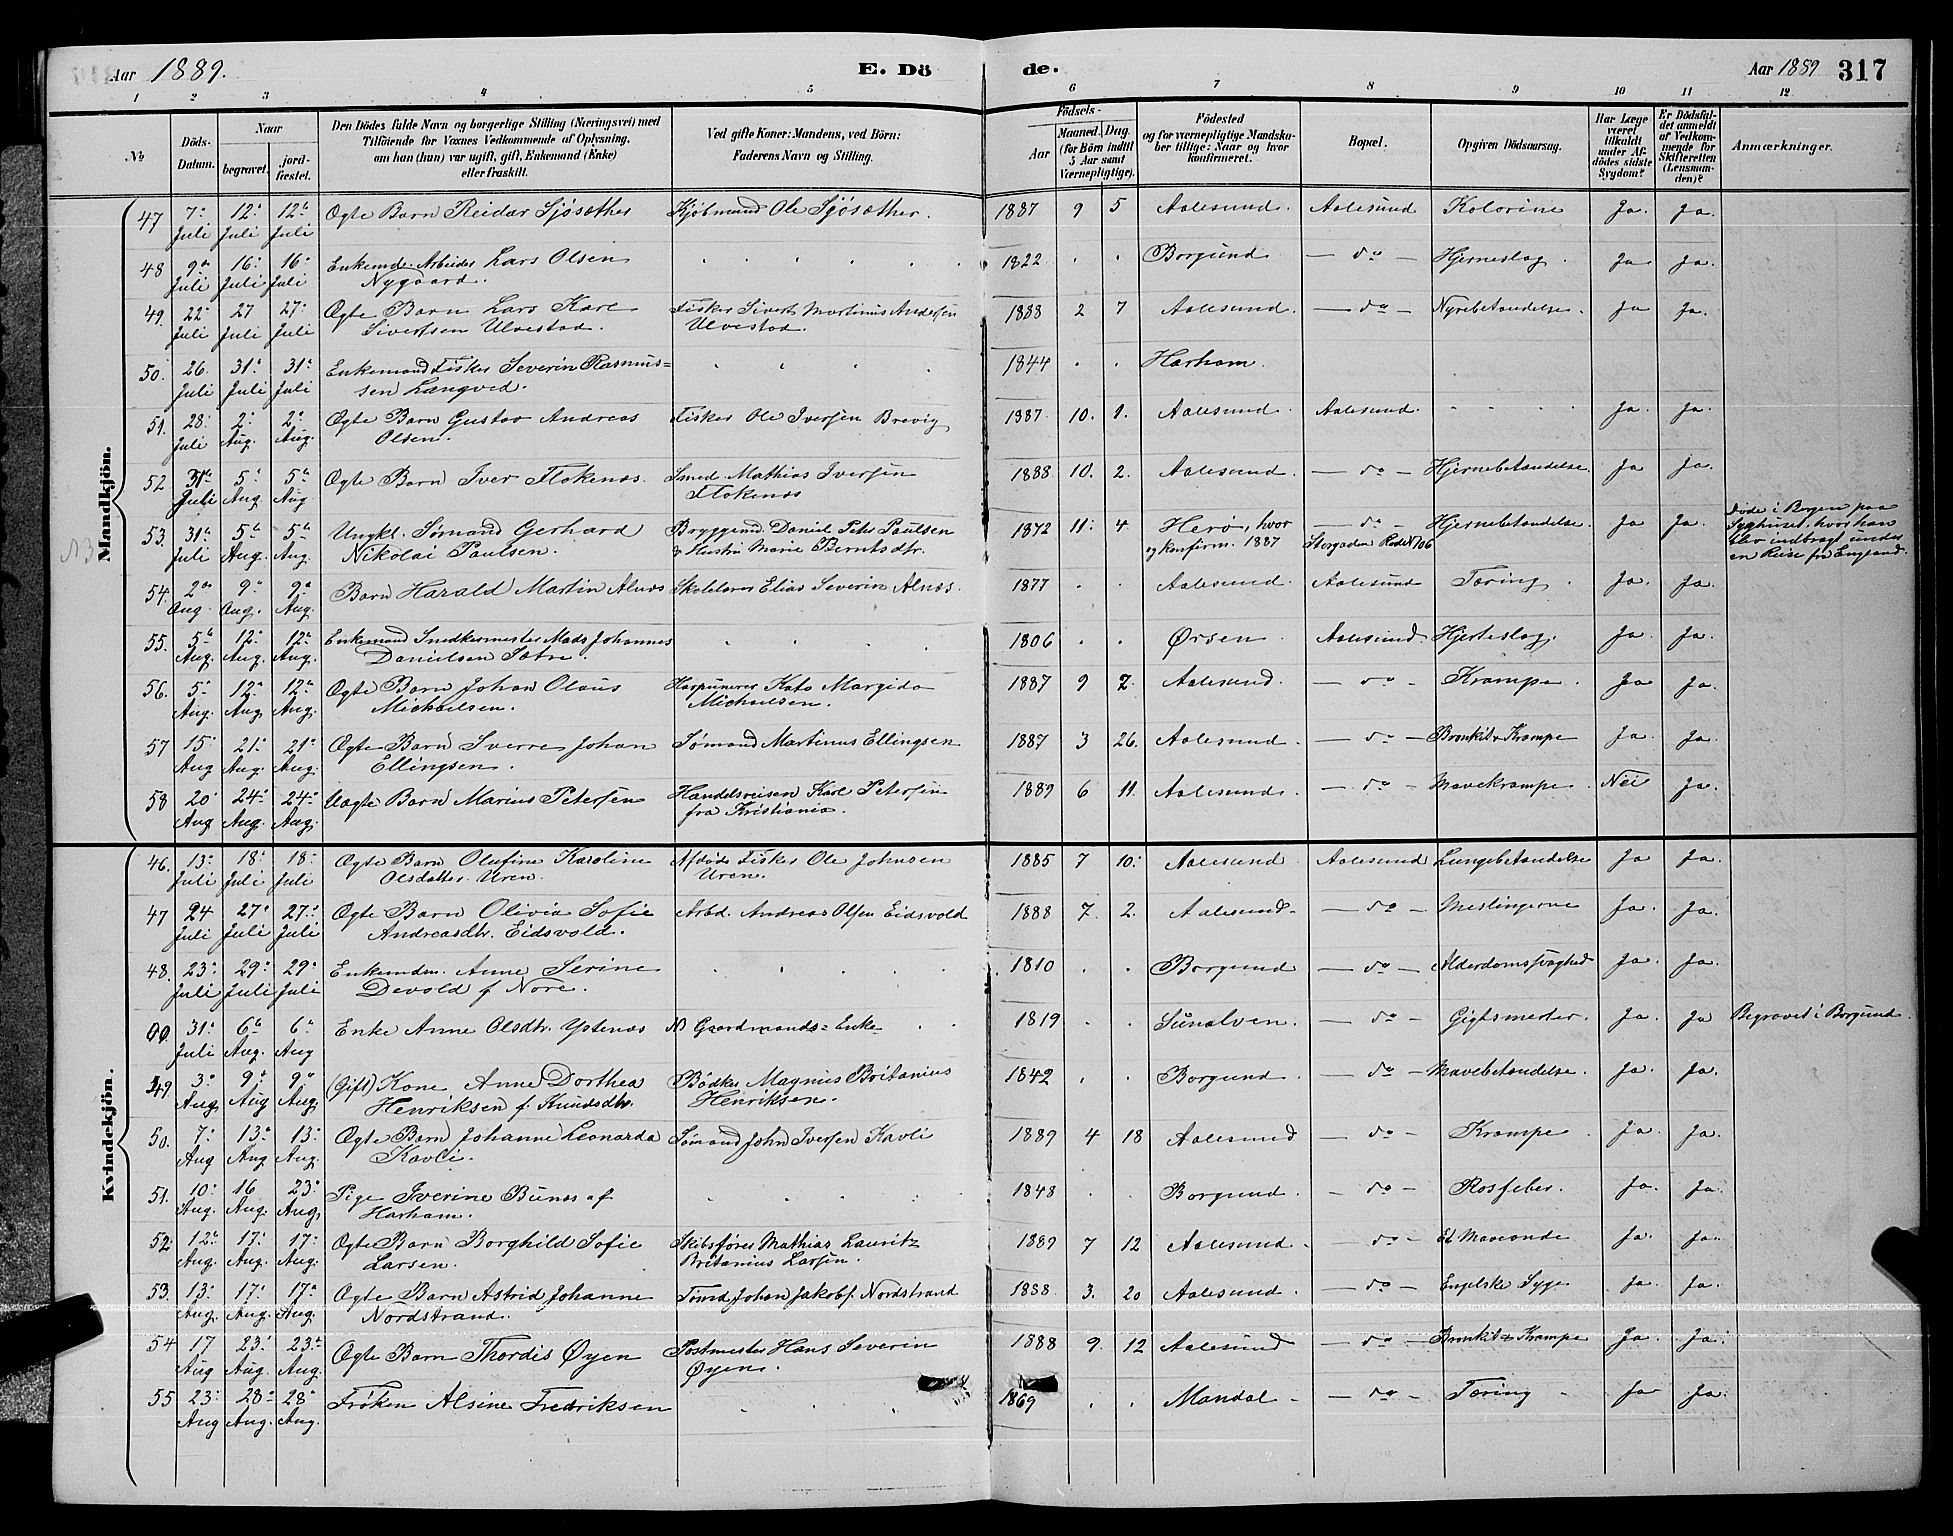 Aar 1889.
E. Dö
de.
Aar 1889
317
1 2 3 4 5 6 7 8 9 10 11 12
No
Döds-Datum.
Naar
begravet.
jord-fæstet.
Den Dödes fulde Navn og borgerlige Stilling (Næringsvei) med
Tilföiende for Voxnes Vedkommende af Oplysning,
om han (hun) var ugift, gift, Enkemand (Enke)
eller fraskilt.
Ved gifte Koner: Mandens, ved Börn:
Faderens Navn og Stilling.
Födsels-
Aar
Maaned. Dag.
(for Börn indtil
5 Aar samt
Værnepligtige).
Födested
og for værnepligtige Mandska-
ber tillige: Naar og hvor
konfirmeret.
Bopæl.
Opgiven Dödsaarsag.
Har Læge
været
tilkaldt
under Af-
dödes sidste
Sygdom?
Er Dödsfal-
det anmeldt
af Vedkom-
mende for
Skifteretten
(Lensman-
den)?
Anmærkninger.
Mandkjön.
47 7de Juli 12te Juli 12te Juli Ægte Barn Reidar Sjösæther Kjöbmand Ole Sjösæther. 1887 9 5 Aalesund. Aalesund Kolerine Ja. Ja.
48 9de Juli 16de Juli 16de Juli Enkemd. Arbeider Lars Olsen
Nygaard. 1822 Borgund — do — Hjerneslag. Ja Ja.
49. 22de Juli 27 Juli 27de Juli Ægte Barn Lars Karl
Sivertsen Ulvestad. Fisker Sivert Martinus Andersen
Ulvestad. 1888 2 7 Aalesund. — do — Nyrebetændelse. Ja Ja.
50. 26. Juli 31te Juli 31te Juli Enkemand Fisker Severin Rasmus=
sen Langved. 1844 Harham.
51. 28de Juli 2den Aug. 2den Aug. Ægte Barn Gustav Andreas
Olsen. Fisker Ole Iversen Brevig 1887. 10. 1. Aalesund. Aalesund. Ja. Ja.
52 31te Juli 5te Aug. 5te Aug Ægte Barn Iver Flokenæs. Smed Mathias Iversen
Flokenæs 1888 10. 2. Aalesund. — do — Hjernebetændelse. Ja Ja.
53. 31te Juli 5te Aug. 5te Aug. Ungkl. Sømand Gerhard
Nikolai Paulsen. Bryggemd. Daniel Peter Paulsen
& Hustru Marie Berntsdtr. 1872 11. 4 Herø, hvor
og konfirm. 1887 — do —
Storgaden Rode N 106 Hjernebetændelse. Ja Ja. Døde i Bergen paa
Syghuset, hvor han
blev indbragt under
en Reise fra England.
54. 2den Aug. 9de Aug. 9de Aug. Barn Harald Martin Alnæs Skolelærer Elias Severin Alnæs. 1877 Aalesund. Aalesund Tæring. Ja. Ja.
55. 5te Aug. 12te Aug. 12te Aug. Enkemand Snedkermester Mads Johannes
Danielsen Sætre. 1806 Ørsen. Aalesund. Hjerteslag. Ja. Ja.
56. 5te Aug. 12te Aug 12te Aug. Ægte Barn Johan Olaus
Michaelsen. Harpunerer Kato Margido
Michaelsen. 1887 9 2. Aalesund. — do — Krampe. Ja Ja.
57 15de Aug 21de Aug. 21de Aug. Ægte Barn Sverre Johan
Ellingsen. Sømand Martinus Ellingsen 1887 3 26. Aalesund. — do — Bronkit & Krampe Ja. Ja.
58 20de Aug 24de Aug. 24de Aug. Uægte Barn Marius Petersen Handelsreisen Karl Petersen
fra Kristiania. 1889 6 11. Aalesund. — do — Mavekrampe. Nei Ja.
Kvindekjön.
46. 13de Juli 18de Juli 18de Juli Ægte Barn Olufine Karoline
Olsdatter Uren. Afdøde Fisker Ole Johnsen
Uren. 1885 7 10. Aalesund Aalesund Lungebetændelse Ja Ja.
47 24 Juli 27de Juli 27de Juli Ægte Barn Olivia Sofie
Andreasdtr. Eidsvold. Arbd. Andreas Olsen Eidsvold 1888 7. 2. Aalesund. — do — Meslingerne Ja. Ja.
48. 23de Juli 29de Juli 29de Juli Enkemdm. Anne Serine
Devold f. Nore. 1810 Borgund — do — Alderdomssvaghed Ja. Ja.
00. 31te Juli 6te Aug. 6te Aug Enke Anne Olsdtr. Ystenæs N Gaardmands= Enke 1819 Sunelven. — do — Gigtsmerter. Ja. Ja Begravet i Borgund.
49 3de Aug. 9de Aug 9de Aug. (Gift) Kone Anne Dorthea
Henriksen f. Knudsdtr. Bødker Magnus Britanius
Henriksen. 1842 Borgund. — do — Mavebetændelse. Ja. Ja.
50. 7de Aug 13de Aug 13de Aug. Ægte Barn Johanne Leonarda
Kavli. Sømand John Iversen Kavli 1889 4 18 Aalesund — do — Krampe. Ja. Ja.
51. 10de Aug. 16 Aug. 23de Aug. Pige Iverine Bunæs af
Harham. 1848 Borgund. — do — Rosfeber. Ja. Ja.
52. 12te Aug. 17de Aug. 17de Aug. Ægte Barn Borghild Sofie
Larsen. Skibsfører Mathias Lauritz
Britanius Larsen. 1889 7 12 Aalesund. — do — Et Maveonde Ja. Ja.
53. 13de Aug. 17de Aug. 17de Aug. Ægte Barn Astrid Johanne
Nordstrand. Tømd Johan Jakobs. Nordstrand 1888 3. 20 Aalesund. — do — Engelske Syge Ja. Ja.
54 17 Aug 23de Aug. 23de Aug. Ægte Barn Thordis Øyen Postmester Hans Severin
Øyen. 1888 9. 12 Aalesund — do — Bronkit & Krampe Ja. Ja.
55 23de Aug 28de Aug. 28de Aug. Frøken Alsine Fredriksen 1869 Mandal. — do — Tæring Ja Ja.